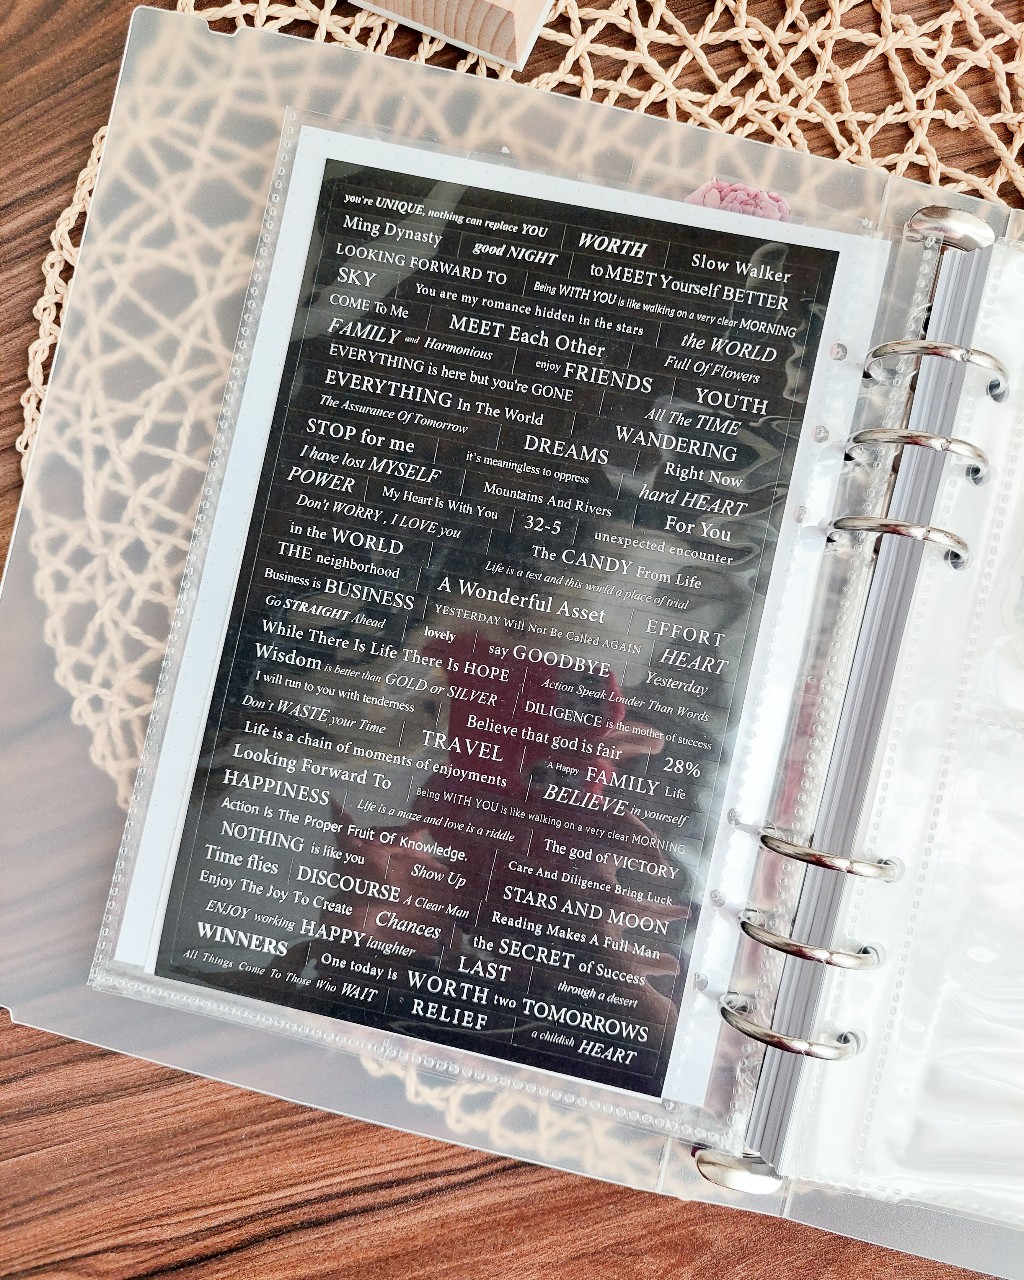 you're UNIQUE, nothing can replace YOU
WORTH
Slow Walker
Ming Dynasty
good NIGHT
to MEET Yourself BETTER
LOOKING FORWARD TO
Being WITH YOU is like walking on a very clear MORNING
SKY
You are my romance hidden in the stars
the WORLD
COME To Me
MEET Each Other
Full Of Flowers
FAMILY and Harmonious
enjoy FRIENDS
YOUTH
EVERYTHING is here but you're GONE
All The TIME
EVERYTHING In The World
WANDERING
The Assurance Of Tomorrow
DREAMS
Right Now
STOP for me
it's meaningless to oppress
hard HEART
I have lost MYSELF
Mountains And Rivers
For You
POWER
My Heart Is With You
32-5
unexpected encounter
Don't WORRY , I LOVE you
The CANDY From Life
in the WORLD
Life is a test and this world a place of trial
THE neighborhood
A Wonderful Asset
EFFORT
Business is BUSINESS
YESTERDAY Will Not Be Called AGAIN
HEART
Go STRAIGHT Ahead
lovely
say GOODBYE
Yesterday
While There Is Life There Is HOPE
Action Speak Louder Than Words
Wisdom is better than GOLD or SILVER
DILIGENCE is the mother of success
I will run to you with tenderness
Believe that god is fair
28%
Don't WASTE your Time
TRAVEL
A Happy FAMILY Life
Life is a chain of moments of enjoyments
BELIEVE in yourself
Looking Forward To
Being WITH YOU is like walking on a very clear MORNING
HAPPINESS
Life is a maze and love is a riddle
The god of VICTORY
Action Is The Proper Fruit Of Knowledge.
Care And Diligence Bring Luck
NOTHING is like you
Show Up
STARS AND MOON
Time flies
DISCOURSE A Clear Man
Reading Makes A Full Man
Enjoy The Joy To Create
Chances
the SECRET of Success
ENJOY working
HAPPY laughter
LAST
through a desert
WINNERS
One today is WORTH two TOMORROWS
All Things Come To Those Who WAIT
RELIEF
a childish HEART